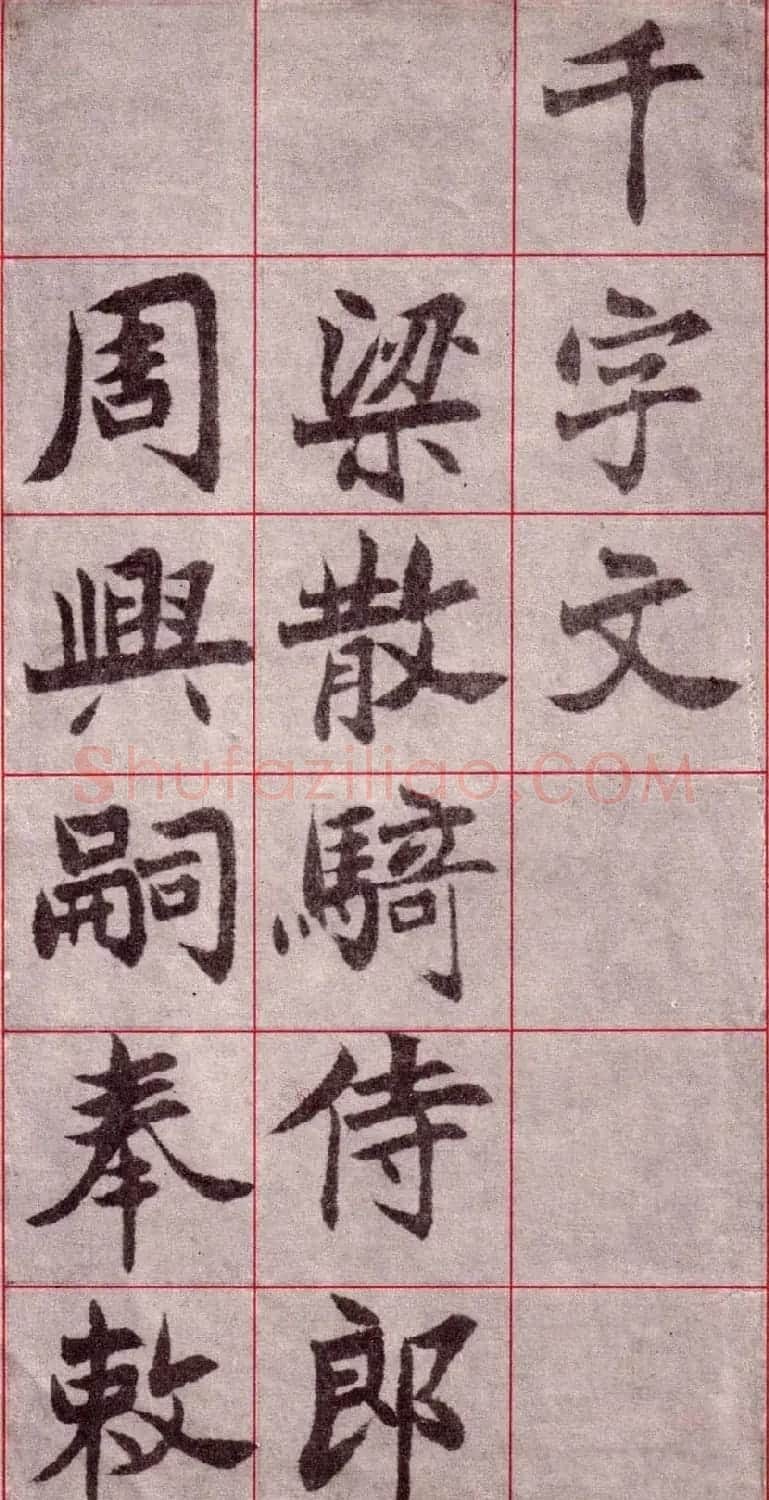 千字文
梁散騎侍郎
周興嗣奉敕
Shufaziliao.COM